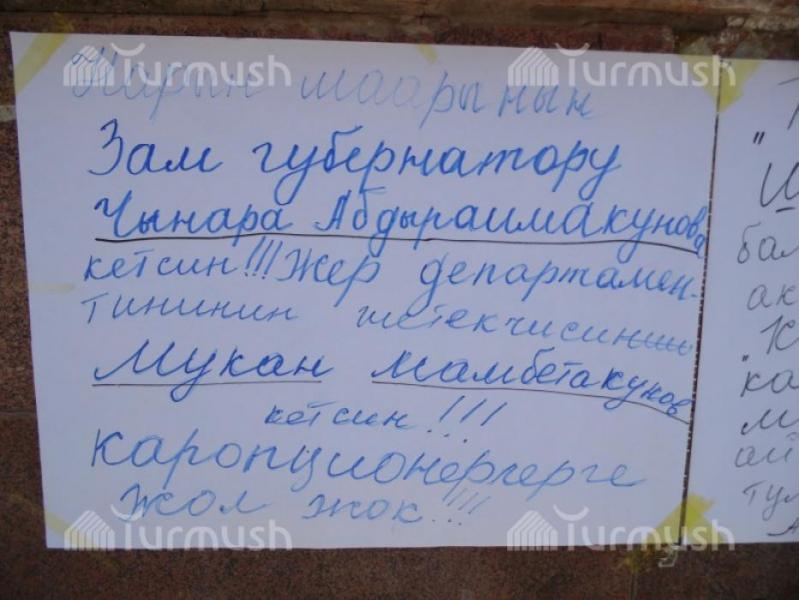 Turmush Turmush
Нарын шаарынын
Зам губернатору
Чынара Абдыраимакунова
кетсин!!! Жер департамен-
тининин жетекчисин
Мукан Мамбетакунов
кетсин!!!
каропционерлерге
жол жок!!!
Turmush Turmush
"
бал
ак
"К
ка
м
ай
тул
А